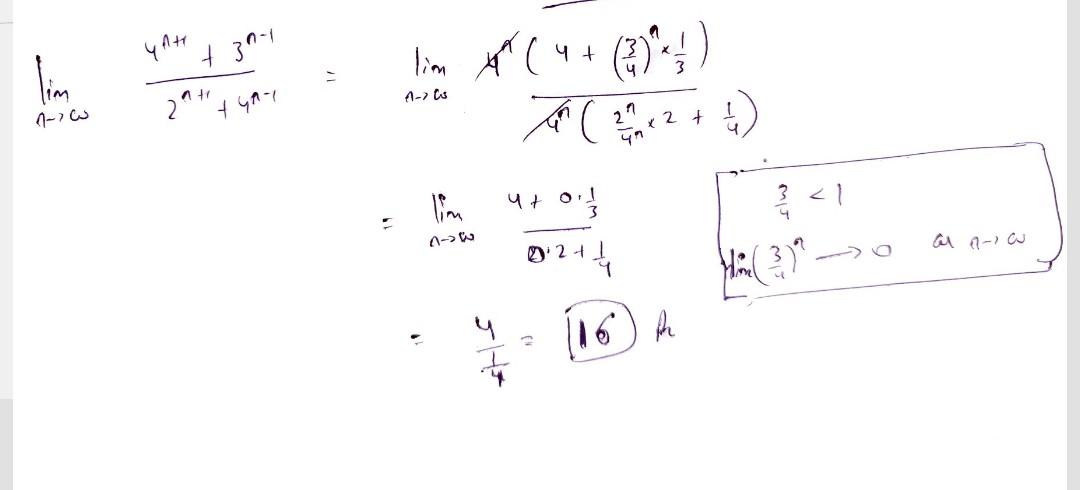 lim n→∞ (4^(n+1) + 3^(n-1)) / (2^(n+1) + 4^(n-1)) = lim n→∞ 4^n ( 4 + (3/4)^n × 1/3 ) / 4^n ( 2^n/4^n × 2 + 1/4 )
= lim n→∞ (4 + 0·1/3) / (0·2 + 1/4)
= 4 / (1/4) = 16
3/4 < 1
lim (3/4)^n → 0 as n→∞